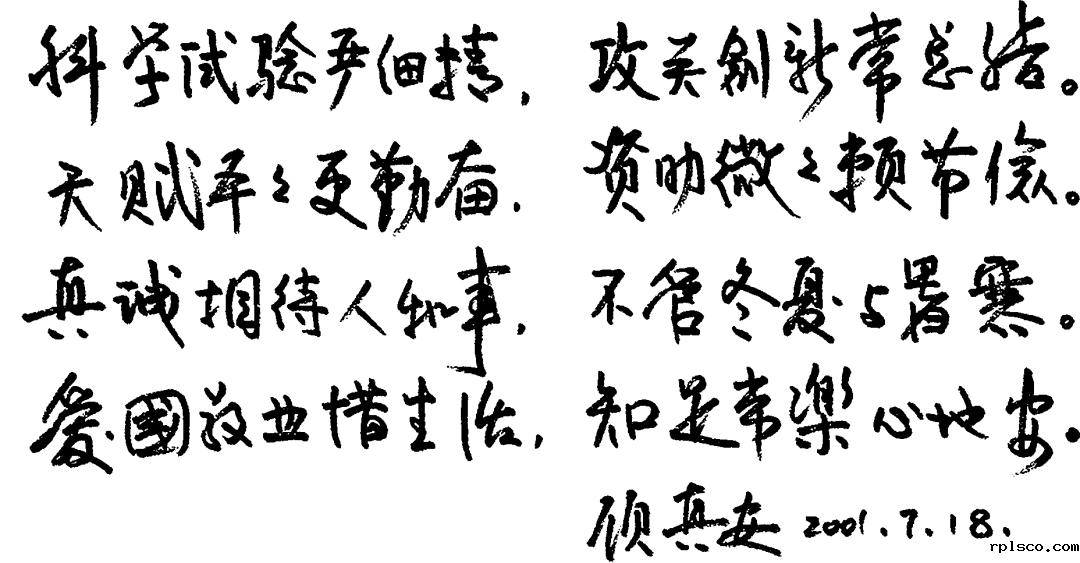 科学试验严细精，攻关创新常总结。
天赋平々更勤奋，资助微々赖节俭。
真诚相待人和事，不管冬夏与暑寒。
爱國敬业惜生活，知足常樂心地安。
顾真安 2001.7.18.
rplsco.com